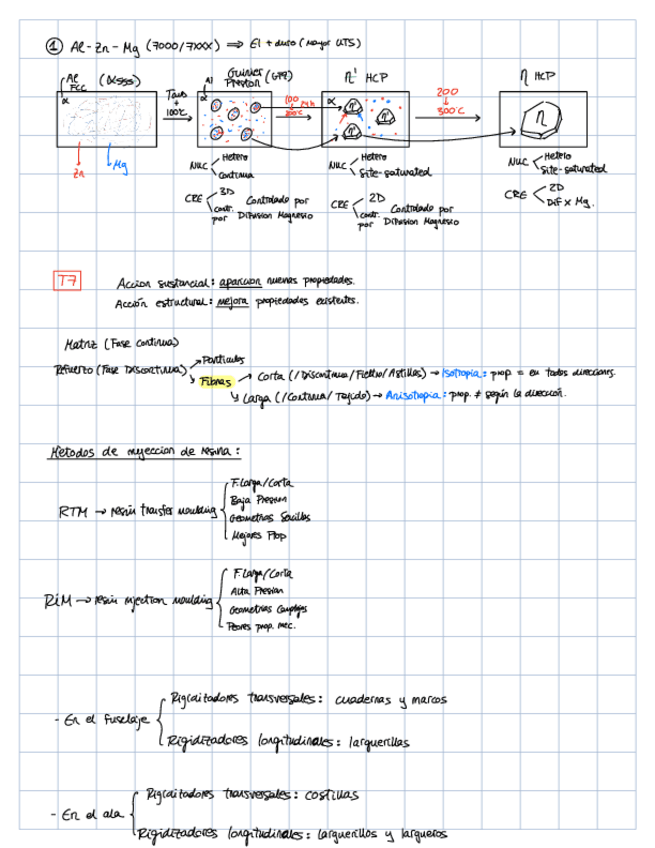 ① Al-Zn-Mg (7000/7XXX) ⟹ El + duro (mayor UTS)
Al FCC (αsss)
α
Zn
Mg
Tamb + 100ºC
Al Guinier Preston (GPZ)
α
100 24h
200ºC
η' HCP
α
η'
η'
η'
200
300ºC
η HCP
η
NUC Hetero
Continua
CRE 3D
Contr. por Difusion Magnesio
Controlado por
NUC Hetero
Site-saturated
CRE 2D
Contr. por Difusion Magnesio
Controlado por
NUC Hetero
Site-saturated
CRE 2D
Dif x Mg.
T7
Accion sustancial: aparicion nuevas propiedades.
Acción estructural: mejora propiedades existentes.
Matriz (Fase Continua)
Refuerzo (Fase Discontinua) → Partículas
Fibras → Corta (/Discontinua/Fieltro/Astillas) → Isotropia: prop = en todas direcciones.
Larga (/Continua/Tejido) → Anisotropia: prop. ≠ según la dirección.
Metodos de inyeccion de resina:
RTM → resin transfer moulding
F. Larga/Corta
Baja Presion
Geometrias Sencillas
Mejores Prop
RIM → resin injection moulding
F. Larga/Corta
Alta Presion
Geometrias Complejas
Peores prop. mec.
- En el fuselaje
Rigidizadores transversales: cuadernas y marcos
Rigidizadores longitudinales: larguerillos
- En el ala
Rigidizadores transversales: costillas
Rigidizadores longitudinales: larguerillos y largueros